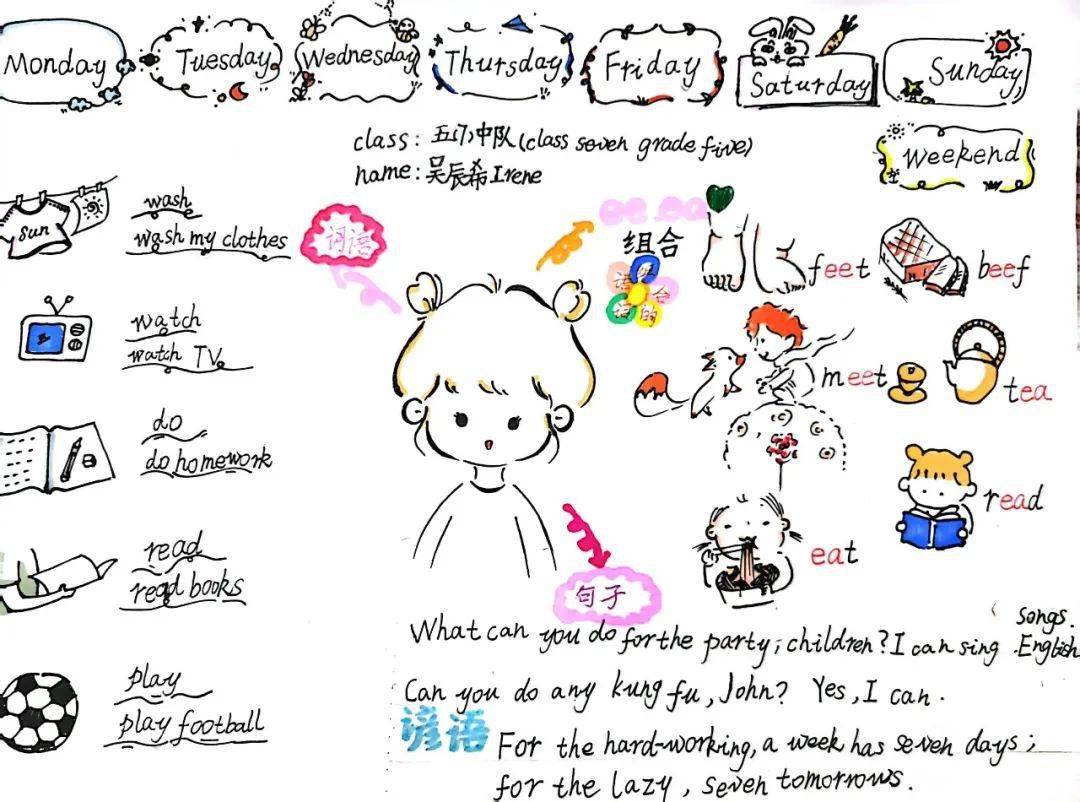 Monday
Tuesday
Wednesday
Thursday
Friday
Saturday
Sunday
Weekend
class: 五(7)中队(class seven grade five)
name: 吴辰希Irene
Sun
wash
wash my clothes
词语
watch
watch TV
do
do homework
read
read books
play
play football
ee ea
组合
feet
beef
meet
tea
read
eat
句子
What can you do for the party, children? I can sing English
songs.
Can you do any kung fu, John? Yes, I can.
谚语
For the hard-working, a week has seven days;
for the lazy, seven tomorrows.